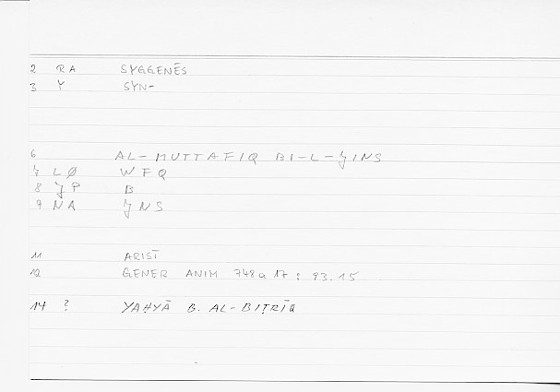 2 RA SYGGENĒS
3 Y SYN-
6 AL-MUTTAFIQ BI-L-ǦINS
7 LØ WFQ
8 ǦP B
9 NA ǦNS
11 ARIST
12 GENER ANIM 748a17 : 93.15
14 ? YAḤYĀ B. AL-BIṬRĪQ